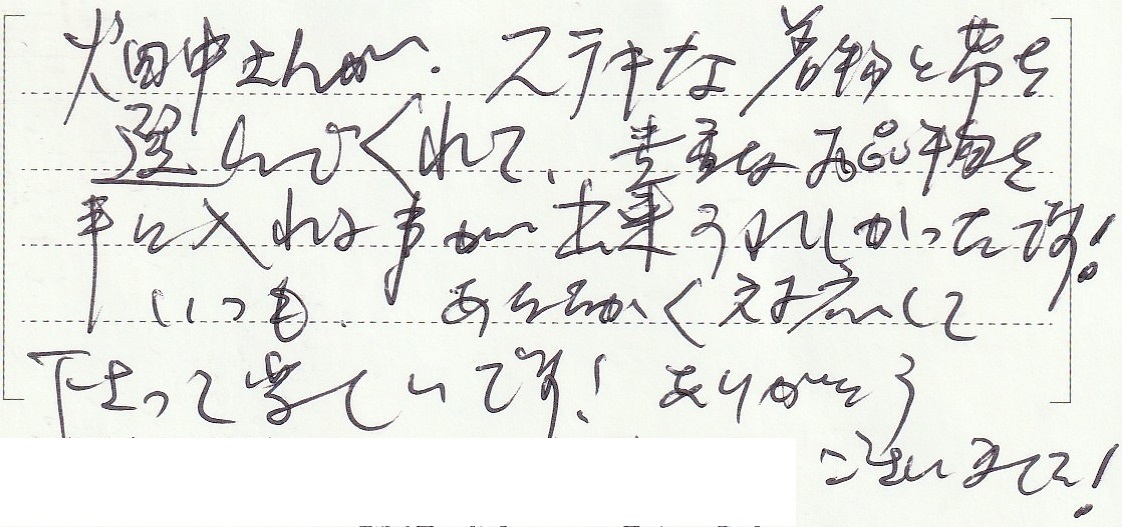 畑中さんが、ステキな着物と帯を
選んでくれて、貴重なお品物を
手に入れる事が出来うれしかったです!
いつも、あたたかく対応して
下さって嬉しいです! ありがとう
ございました!